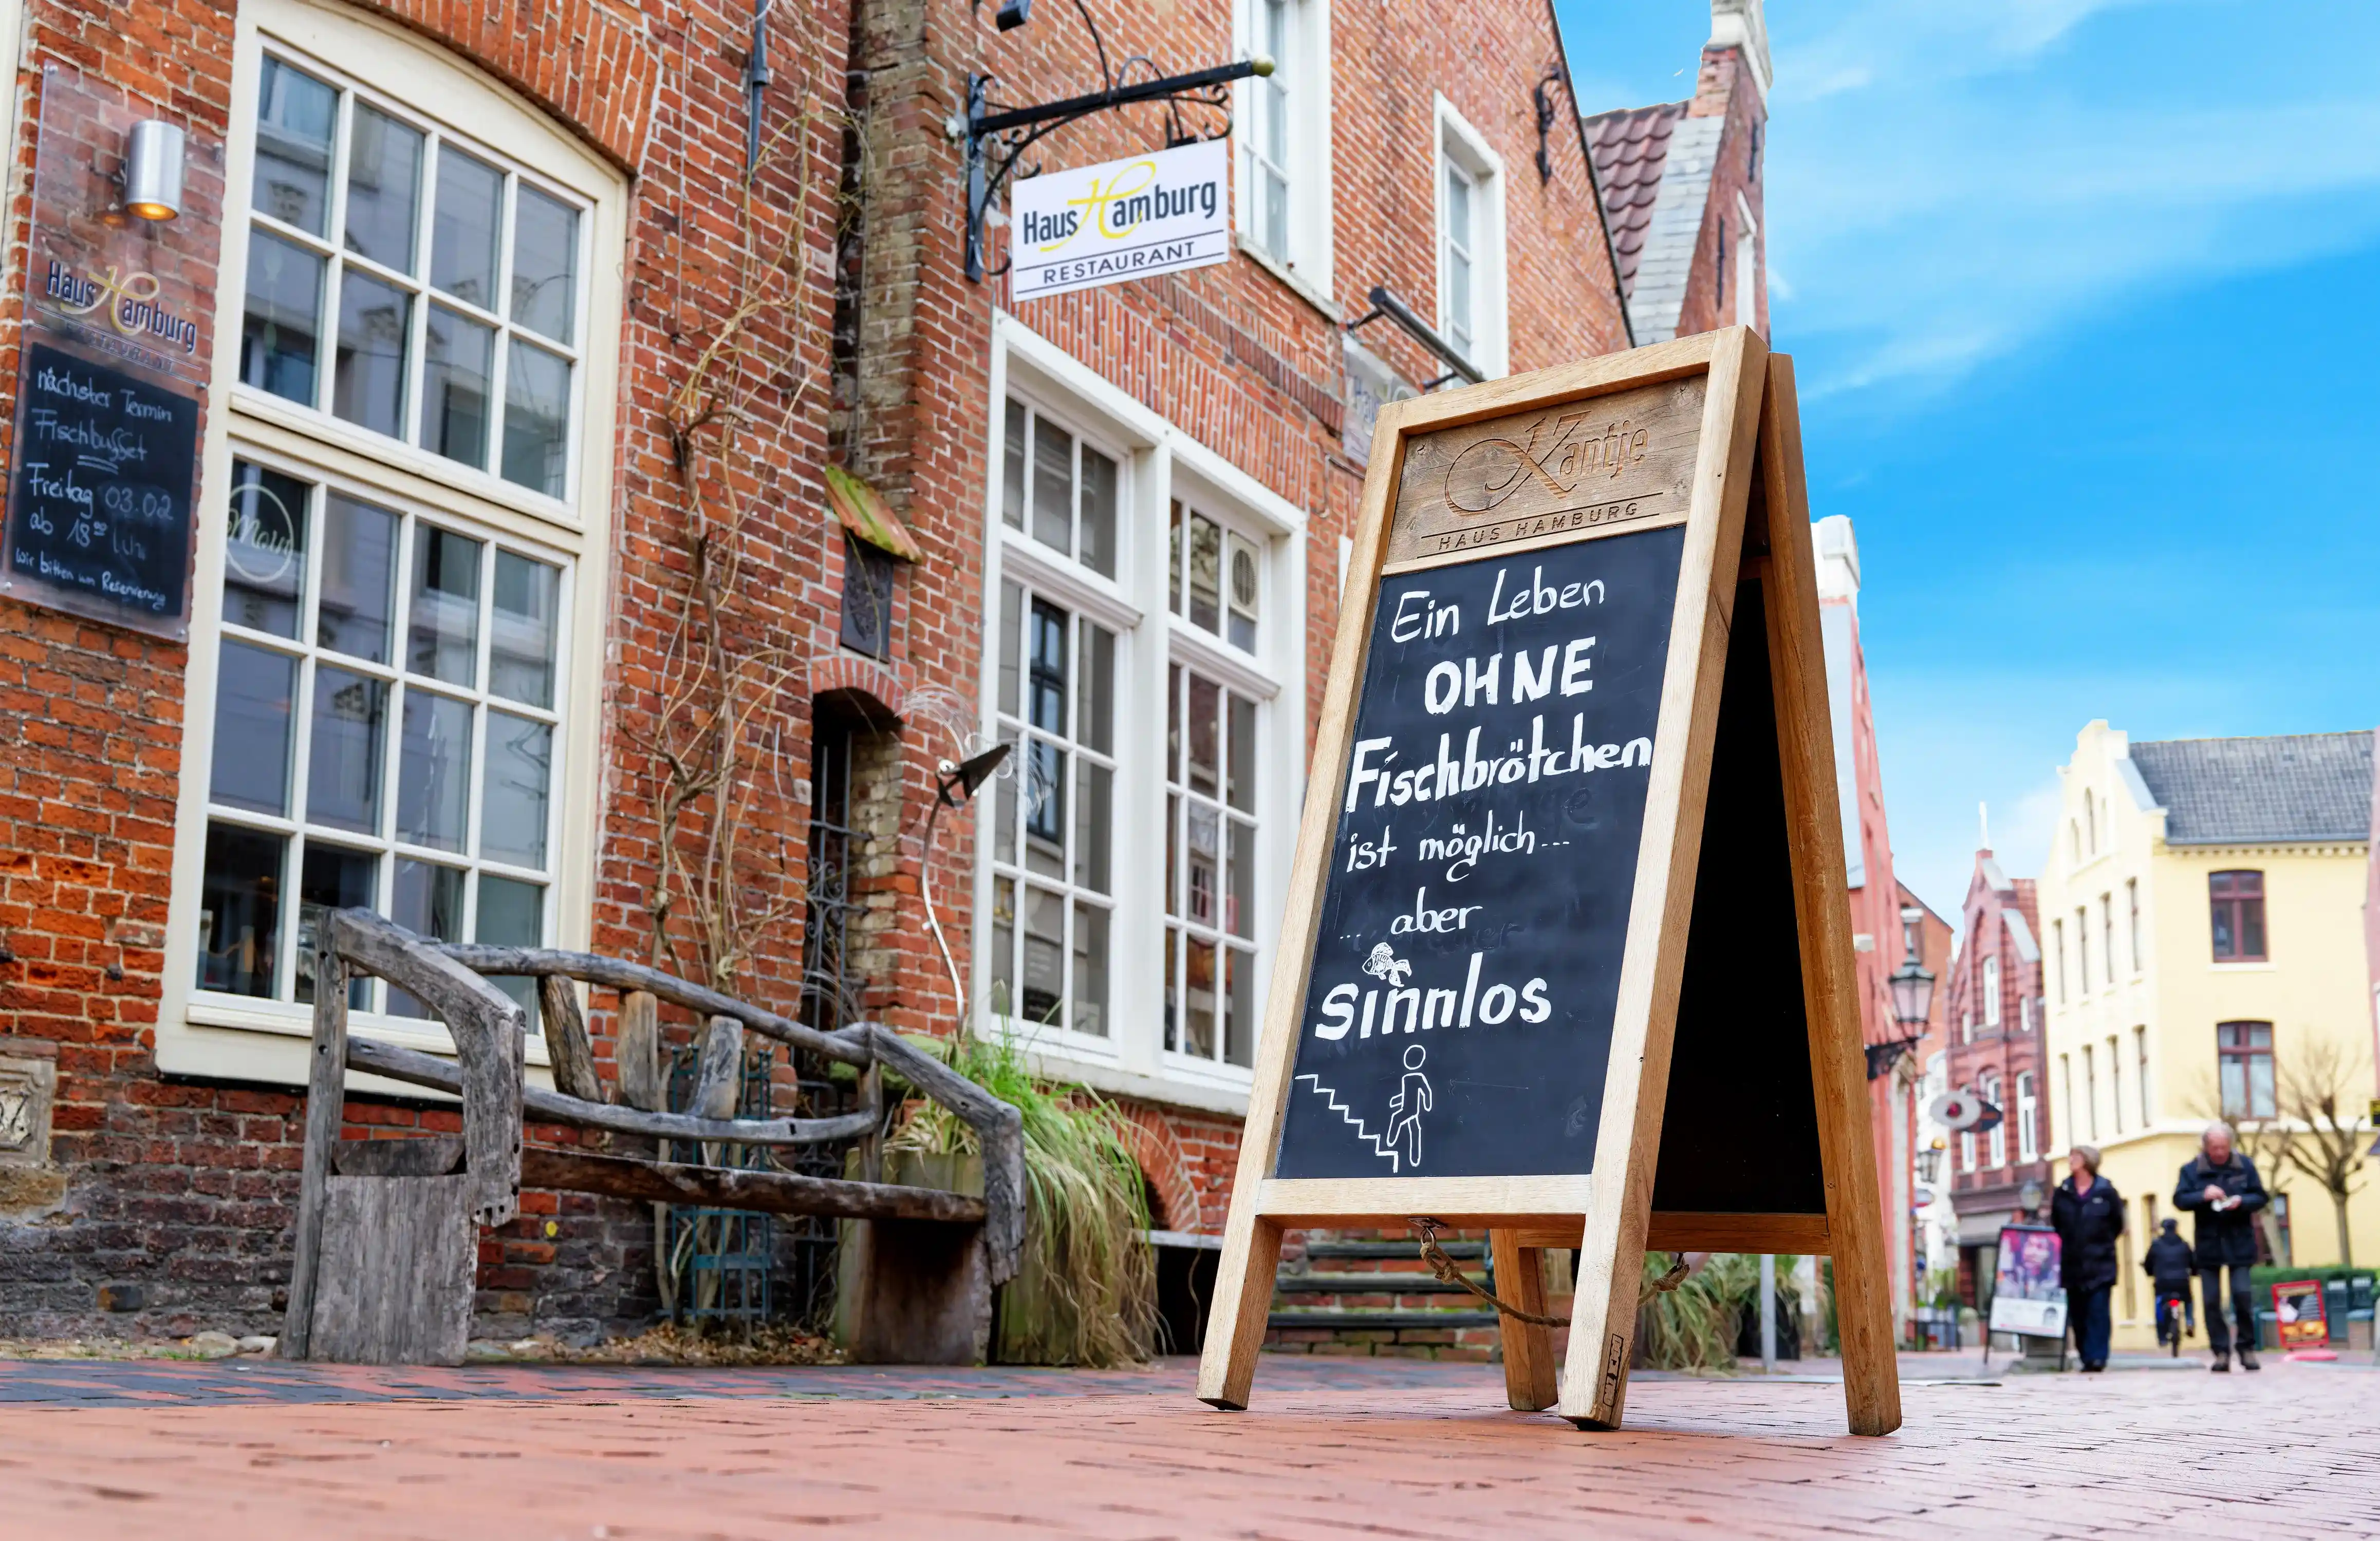 Haus Hamburg
RESTAURANT
Haus Hamburg
RESTAURANT
nächster Termin
Fischbuffet
Freitag 03.02
ab 18⁰⁰ Uhr
wir bitten um Reservierung
Moin
Kantje
17
HAUS HAMBURG
Ein Leben
OHNE
Fischbrötchen
ist möglich...
... aber
Sinnlos